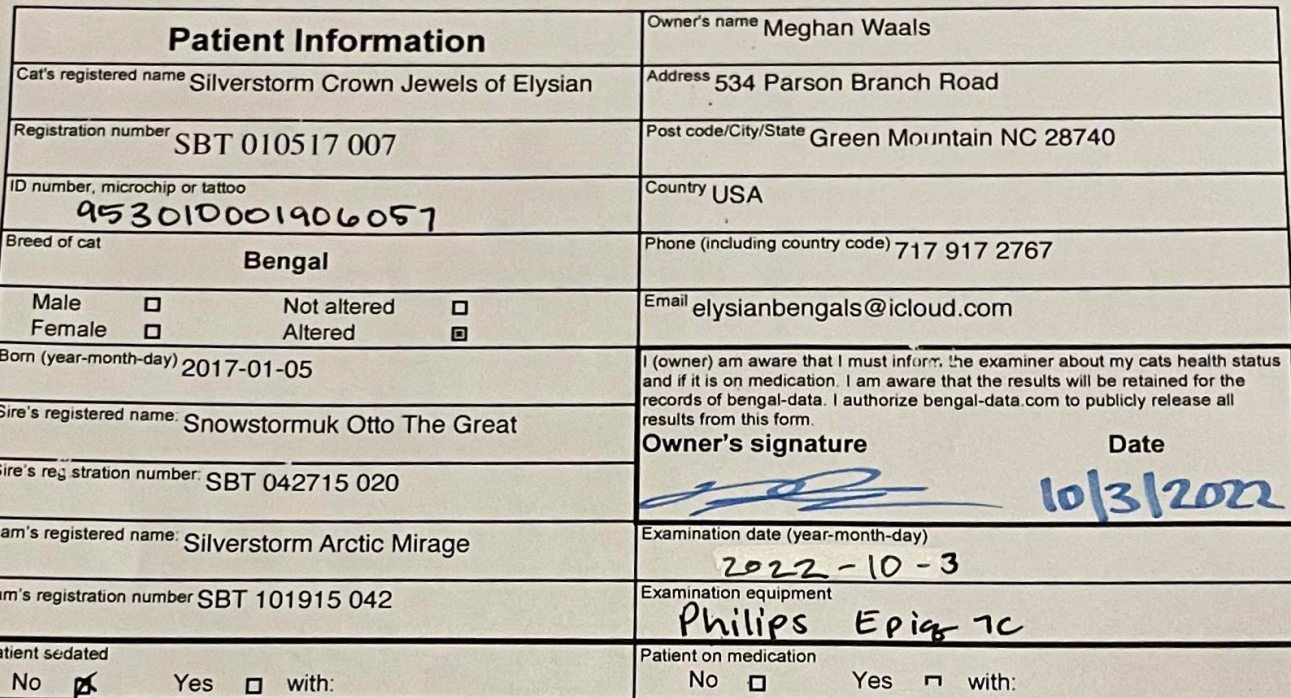 Patient Information
Cat's registered name Silverstorm Crown Jewels of Elysian
Registration number SBT 010517 007
ID number, microchip or tattoo
953010001906057
Breed of cat
Bengal
Male ☐ Not altered ☐
Female ☐ Altered ▣
Born (year-month-day) 2017-01-05
Sire's registered name: Snowstormuk Otto The Great
ire's reg stration number: SBT 042715 020
am's registered name: Silverstorm Arctic Mirage
m's registration number SBT 101915 042
atient sedated
No ☒ Yes ☐ with:
Owner's name Meghan Waals
Address 534 Parson Branch Road
Post code/City/State Green Mountain NC 28740
Country USA
Phone (including country code) 717 917 2767
Email elysianbengals@icloud.com
I (owner) am aware that I must inform the examiner about my cats health status
and if it is on medication. I am aware that the results will be retained for the
records of bengal-data. I authorize bengal-data.com to publicly release all
results from this form.
Owner's signature Date
10/3/2022
Examination date (year-month-day)
2022-10-3
Examination equipment
Philips Epiq 7C
Patient on medication
No ☐ Yes ☐ with: